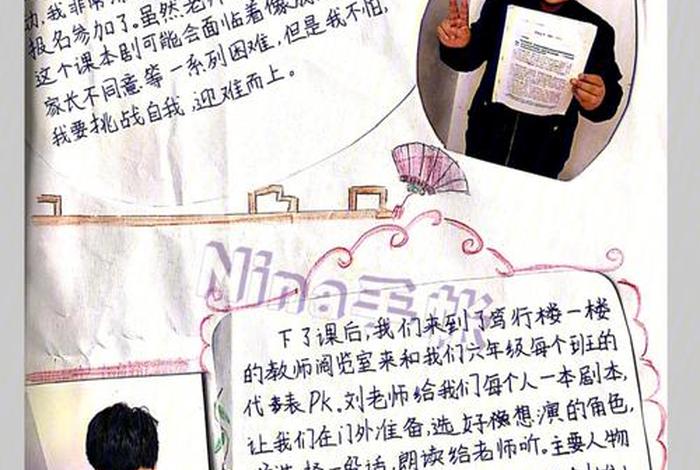 动,我非常
报名参加了。虽然老师
这个课本剧可能会面临着像
家长不同意等一系列困难,但是我不怕,
我要挑战自我,迎难而上。
Nina手帐
下了课后,我们来到了笃行楼一楼
的教师阅览室来和我们六年级每个班的
代表PK.刘老师给我们每个人一本剧本,
让我们在门外准备,选好想演的角色,
选择一段话,朗读给老师听。主要人物